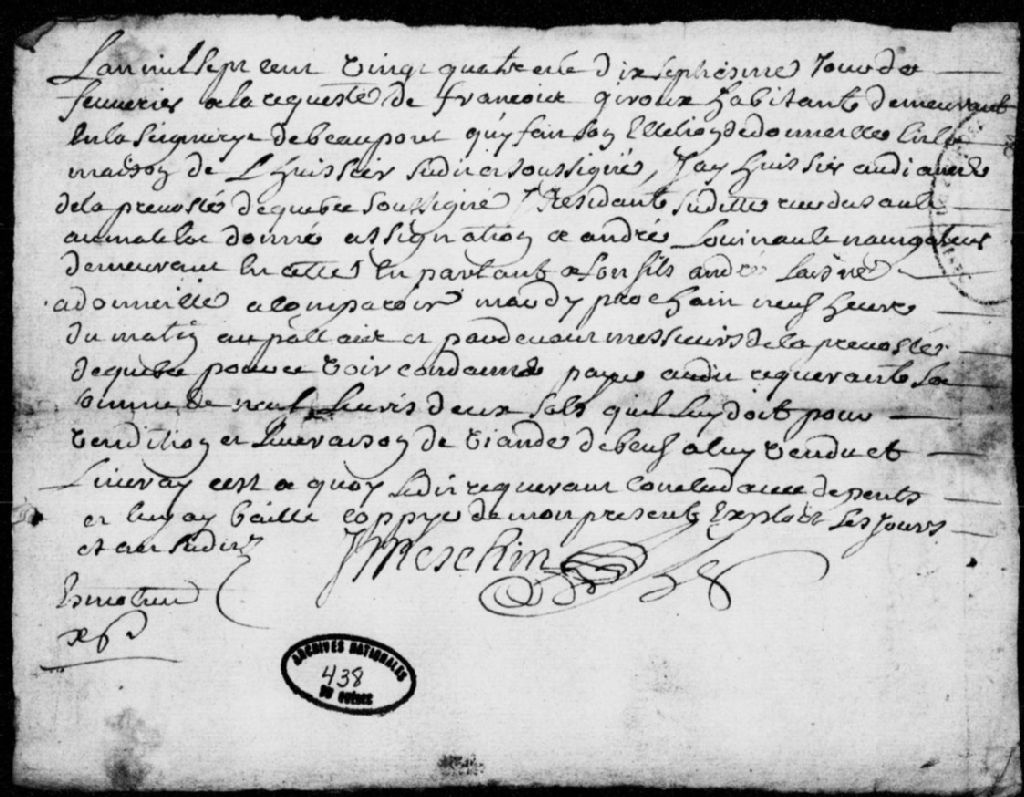 Lan mil sept cent vingt quatre et le dix septiesme Jour de
feuverier a la requeste de francois giroux habitant demeurant
En la Seigneurye de beauport quy fait son Ellection de domicille En la
maison de L huissier sudit et soussigné, Jay huissier audiancie
de la prevosté de quebec soussigné y Residant susditte rue du sault
au matelot donné assignation a andré Louinault navigateur
demeurant En cette En parlant a son fils andré Laisné
a domicille a Comparoir mardy prochain neuf heure
du matin au pallais et par devant messieurs de la prevosté
de quebec pour ce voir condamné paye audit requerant La
somme de neuf Livres deux sols quil Luy doit pour
vendition et Livraison de viande de beuf a luy vendu et
Livray cest a quoy Ledit requerant conclud avec depents
et luy ay baillé coppye de mon present Exploit Les Jours
et an sudit
J Meschin
ARCHIVES NATIONALES
438
DU QUÉBEC